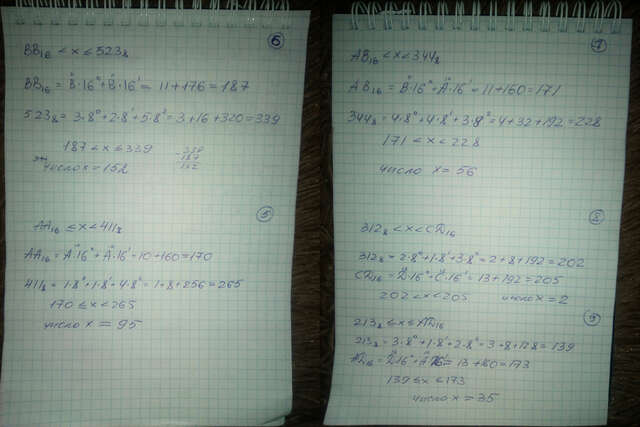 6
BB₁₆ ≤ x ≤ 523₈
BB₁₆ = B·16⁰ + B·16¹ = 11+176 = 187
523₈ = 3·8⁰+2·8¹+5·8² = 3+16+320=339
187 ≤ x ≤ 339
число x = 152
339
187
152
5
AA₁₆ ≤ x ≤ 411₈
AA₁₆ = A·16⁰ + A·16¹ = 10+160=170
411₈ = 1·8⁰+1·8¹+4·8² = 1+8+256=265
170 ≤ x ≤ 265
число x = 95
7
AB₁₆ ≤ x ≤ 344₈
AB₁₆ = B·16⁰ + A·16¹ = 11+160=171
344₈ = 4·8⁰+4·8¹+3·8² = 4+32+192=228
171 < x < 228
число x = 56
8
312₈ < x < CD₁₆
312₈ = 2·8⁰+1·8¹+3·8² = 2+8+192 = 202
CD₁₆ = D·16⁰+C·16¹ = 13+192 = 205
202 < x < 205 число x = 2
9
213₈ ≤ x ≤ AD₁₆
213₈ = 3·8⁰+1·8¹+2·8² = 3+8+128 = 139
AD₁₆ = D·16⁰+A·16¹ = 13+160=173
139 ≤ x ≤ 173
число x = 35